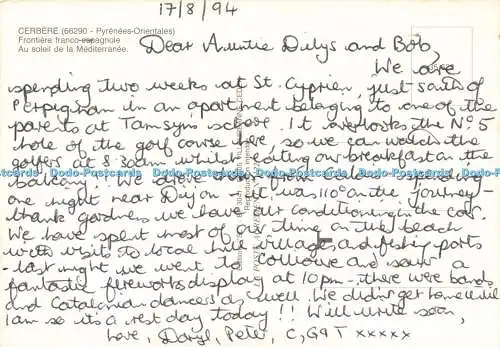 17/8/94
CERBÈRE (66290 - Pyrénées-Orientales)
Frontière franco-espagnole
Au soleil de la Méditerranée.
Dear Auntie Dilys and Bob,
We are
spending two weeks at St. Cyprien, just south of
Perpignan in an apartment belonging to one of the
parents at Tamsyns school. It overlooks the No 5
hole of the golf course here, so we can watch the
golfers at 8.30am whilst eating our breakfast on the
balcony! We drove down from Calais
one night near Dijon - it was 110° on the journey -
thank goodness we have air conditioning in the car.
We have spent most of our time on the beach
with visits to local hill villages and fishing ports
- last night we went to Collioure and saw a
fantastic fireworks display at 10pm - there were bands
and Catalonian dancers as well. We didn't get home until
1am so it's a rest day today!! Will write soon,
Love, Daryl, Peter, C, G & T xxxxx
Dodo-Postcards Dodo-Postcards Dodo-Postcards Dodo-Postcards Dodo-Postcards